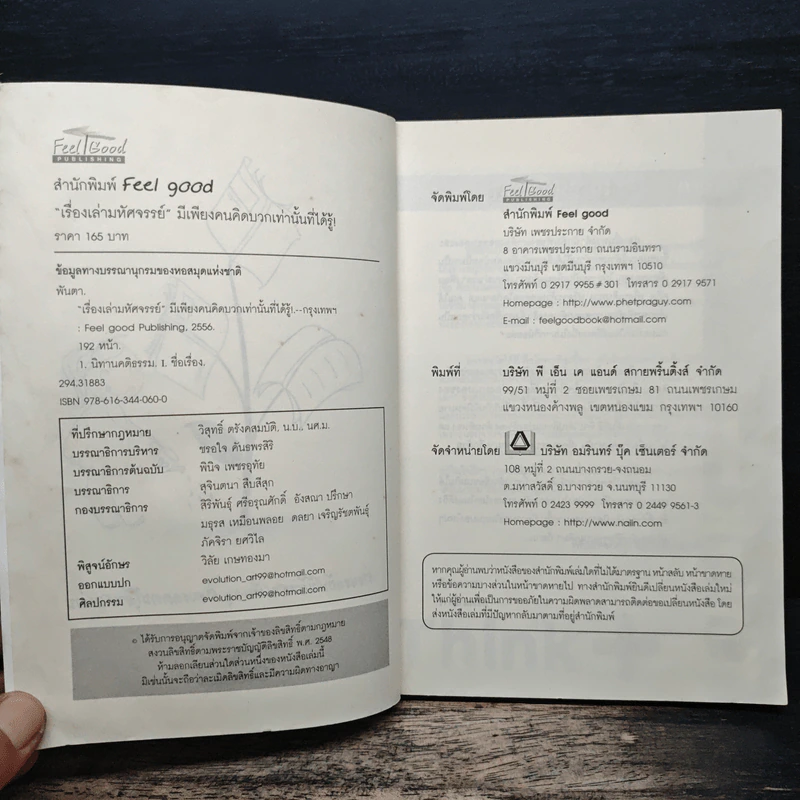 Feel Good
PUBLISHING
สำนักพิมพ์ Feel good
"เรื่องเล่ามหัศจรรย์" มีเพียงคนคิดบวกเท่านั้นที่ได้รู้!
ราคา 165 บาท
ข้อมูลทางบรรณานุกรมของหอสมุดแห่งชาติ
พันตา.
"เรื่องเล่ามหัศจรรย์" มีเพียงคนคิดบวกเท่านั้นที่ได้รู้!.--กรุงเทพฯ
: Feel good Publishing, 2556.
192 หน้า.
1. นิทานคติธรรม. I. ชื่อเรื่อง.
294.31883
ISBN 978-616-344-060-0
ที่ปรึกษากฎหมาย วิสุทธิ์ ตรังคสมบัติ, น.บ., นศ.ม.
บรรณาธิการบริหาร ชรอใจ คันธพรสิริ
บรรณาธิการต้นฉบับ พินิจ เพชรอุทัย
บรรณาธิการ สุจินตนา สืบสีสุก
กองบรรณาธิการ สิริพันธุ์ ศรีอรุณศักดิ์ อังสณา ปรึกษา
มธุรส เหมือนพลอย ดลยา เจริญรัชตพันธุ์
ภัคจิรา ยศวิไล
พิสูจน์อักษร วิลัย เกษทองมา
ออกแบบปก evolution_art99@hotmail.com
ศิลปกรรม evolution_art99@hotmail.com
© ได้รับการอนุญาตจัดพิมพ์จากเจ้าของลิขสิทธิ์ตามกฎหมาย
สงวนลิขสิทธิ์ตามพระราชบัญญัติลิขสิทธิ์ พ.ศ. 2548
ห้ามลอกเลียนส่วนใดส่วนหนึ่งของหนังสือเล่มนี้
มิเช่นนั้นจะถือว่าละเมิดลิขสิทธิ์และมีความผิดทางอาญา
จัดพิมพ์โดย Feel Good
PUBLISHING
สำนักพิมพ์ Feel good
บริษัท เพชรประกาย จำกัด
8 อาคารเพชรประกาย ถนนรามอินทรา
แขวงมีนบุรี เขตมีนบุรี กรุงเทพฯ 10510
โทรศัพท์ 0 2917 9955 # 301 โทรสาร 0 2917 9571
Homepage : http://www.phetpraguy.com
E-mail : feelgoodbook@hotmail.com
พิมพ์ที่ บริษัท พี เอ็น เค แอนด์ สกายพริ้นติ้งส์ จำกัด
99/51 หมู่ที่ 2 ซอยเพชรเกษม 81 ถนนเพชรเกษม
แขวงหนองค้างพลู เขตหนองแขม กรุงเทพฯ 10160
จัดจำหน่ายโดย บริษัท อมรินทร์ บุ๊ค เซ็นเตอร์ จำกัด
108 หมู่ที่ 2 ถนนบางกรวย-จงถนอม
ต.มหาสวัสดิ์ อ.บางกรวย จ.นนทบุรี 11130
โทรศัพท์ 0 2423 9999 โทรสาร 0 2449 9561-3
Homepage : http://www.naiin.com
หากคุณผู้อ่านพบว่าหนังสือของสำนักพิมพ์เล่มใดที่ไม่ได้มาตรฐาน หน้าสลับ หน้าขาดหาย
หรือข้อความบางส่วนในหน้าขาดหายไป ทางสำนักพิมพ์ยินดีเปลี่ยนหนังสือเล่มใหม่
ให้แก่ผู้อ่านเพื่อเป็นการขออภัยในความผิดพลาดสามารถติดต่อขอเปลี่ยนหนังสือ โดย
ส่งหนังสือเล่มที่มีปัญหากลับมาตามที่อยู่สำนักพิมพ์